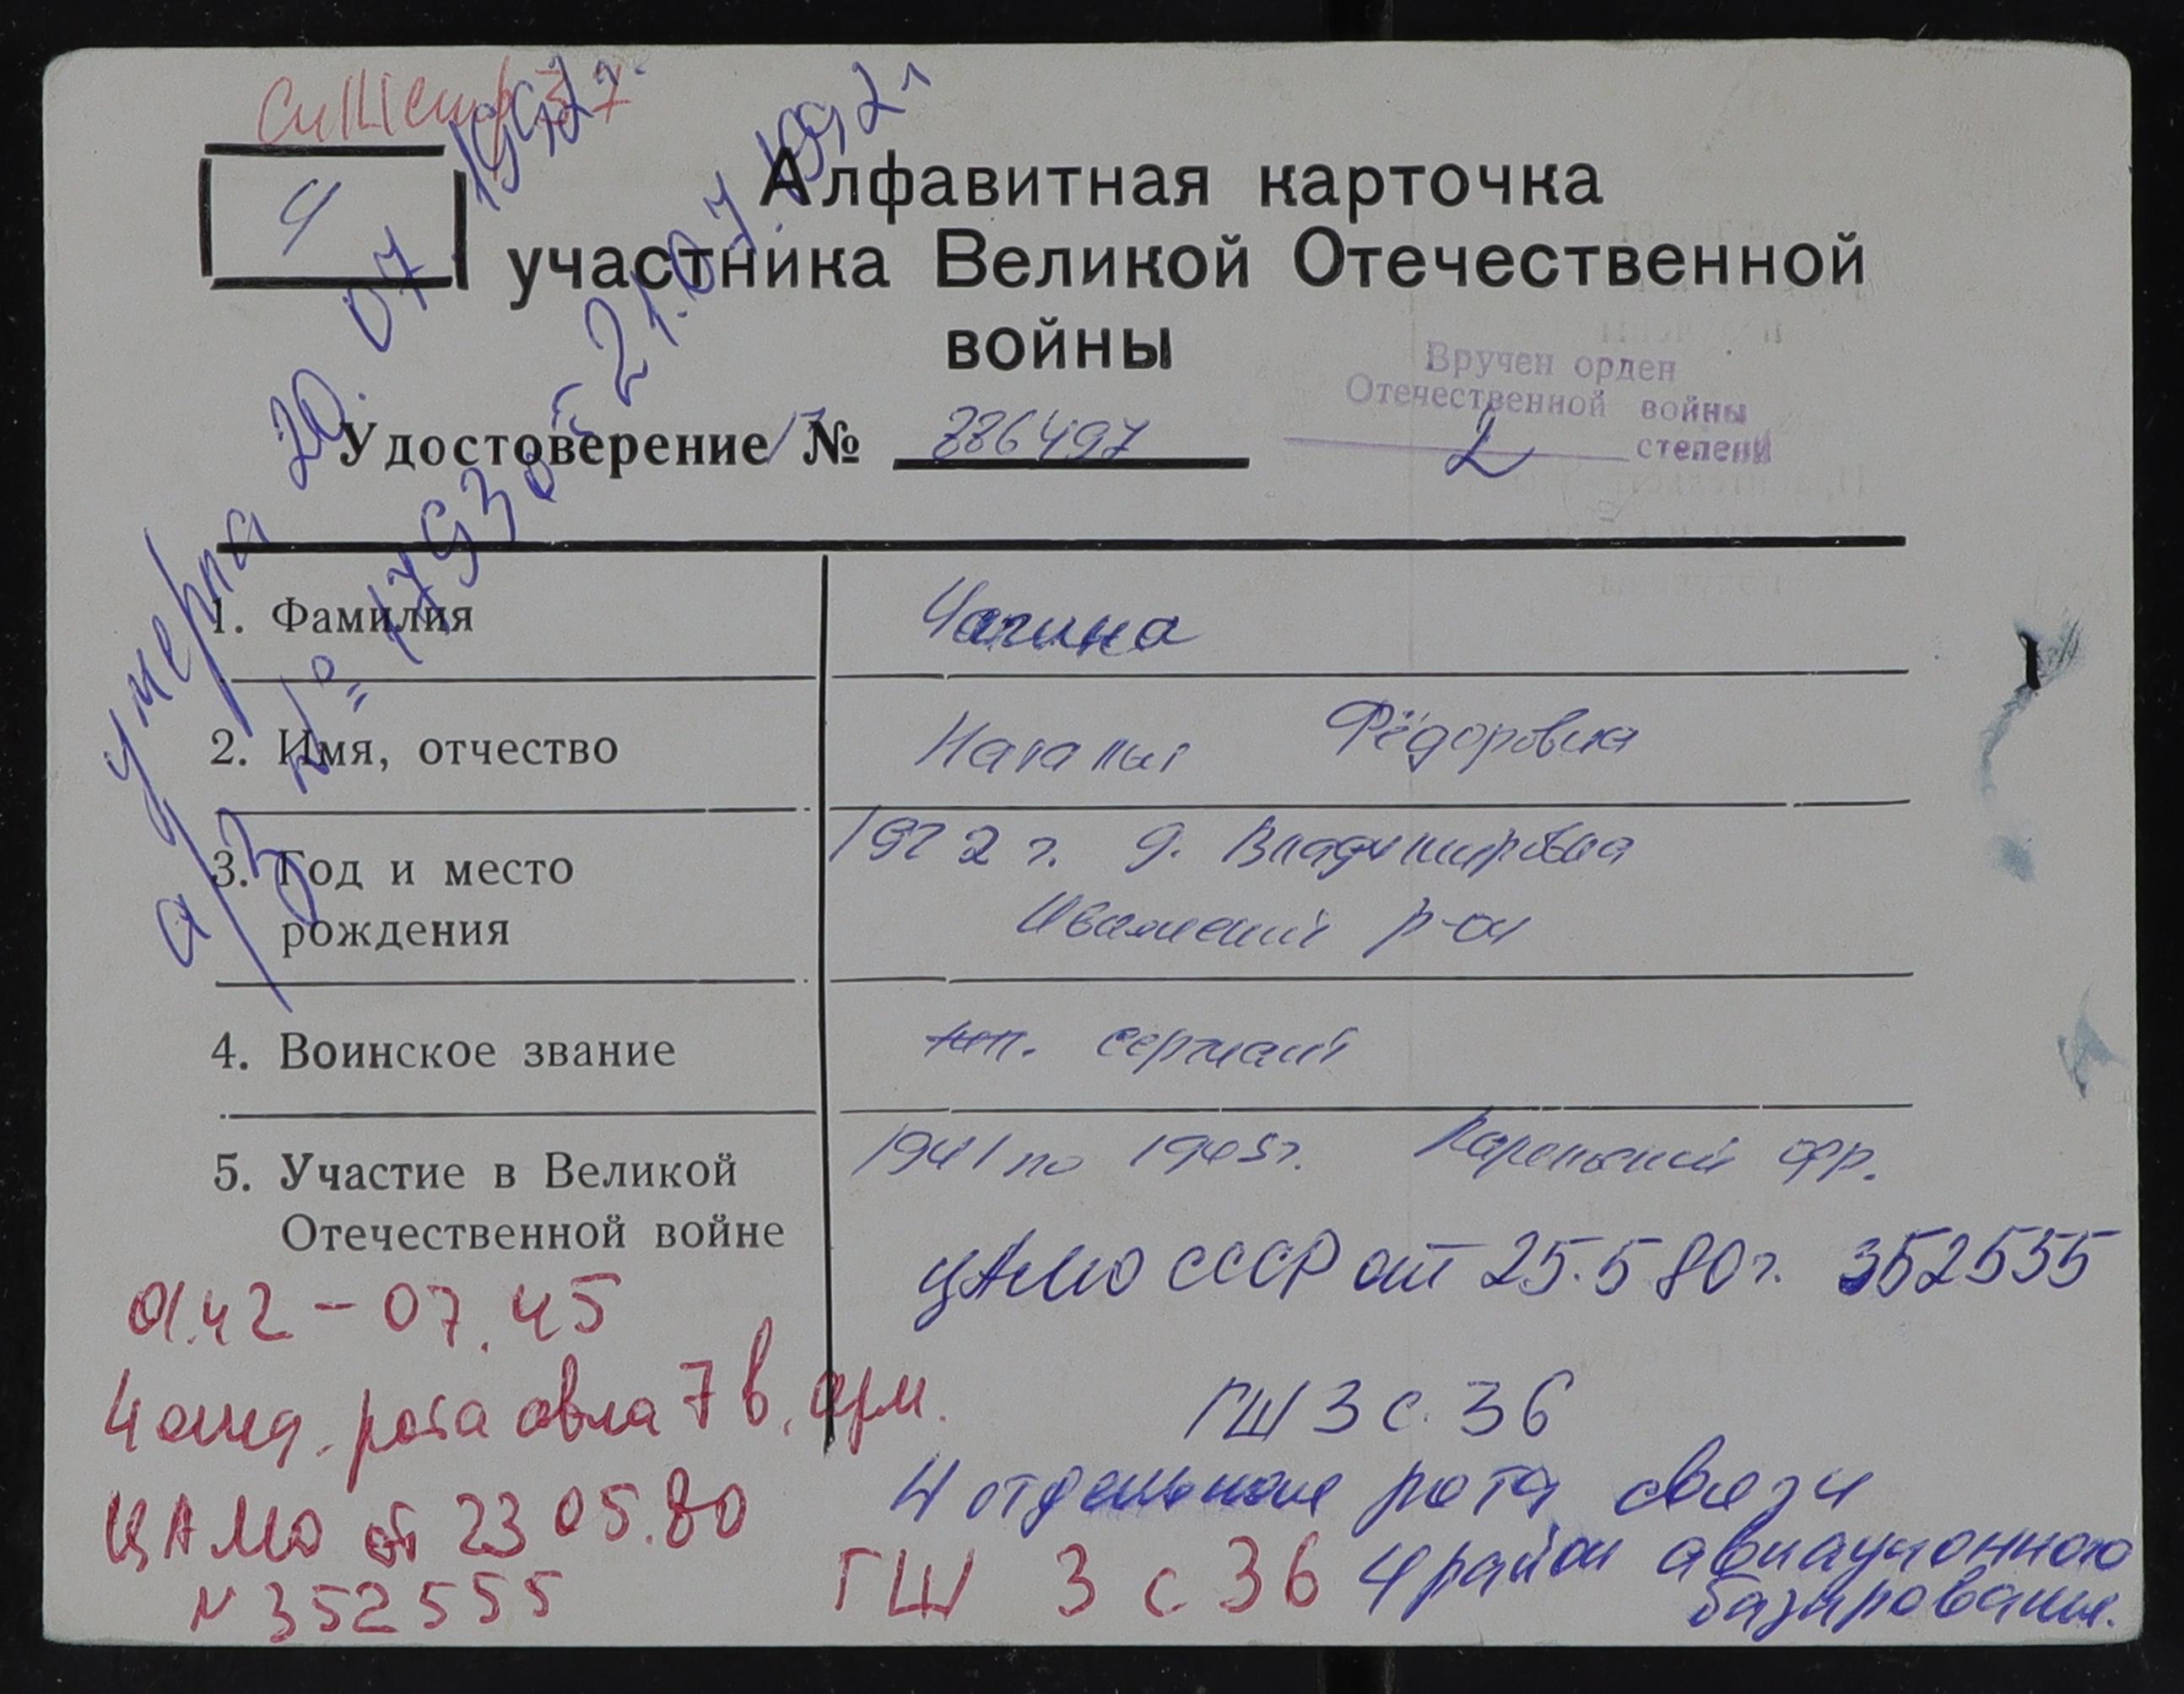 Ч
Алфавитная карточка
участника Великой Отечественной
войны
Вручен орден
Отечественной войны
2 степени
Удостоверение № 886497
умерла 20.07.1992г.
а/з № 1793 от 21.07.1992г
1. Фамилия Чагина
2. Имя, отчество Наталья Фёдоровна
3. Год и место 1922 г. д. Владимировка
рождения р-он
4. Воинское звание мл. сержант
5. Участие в Великой 1941 по 1945г. Карельский фр.
Отечественной войне
ЦАМО СССР от 25.5.80г. 352555
01.42 - 07.45
ГШ 3 с. 36
4 отд. рота авиа 7 в. арм.
4 отдельная рота связи
ЦАМО от 23 05.80
4 район авиационного
базирования.
N 352555
ГШ 3 с 36